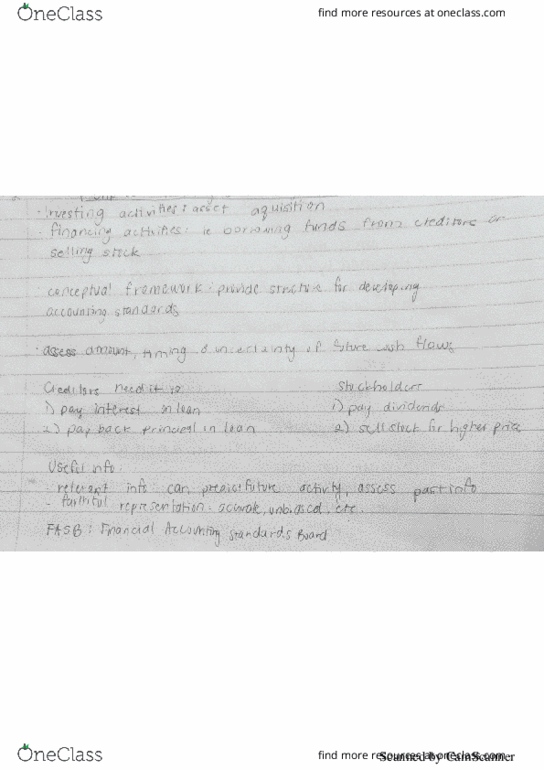 OneClass
find more resources at oneclass.com
· Investing activities: asset aquisition
· financing activities: ie borrowing funds from creditors or
selling stock
· conceptual framework: provide structure for developing
accounting standards
· assess amount, timing & uncertainty of future cash flows
Creditors need it to
Stockholders
1) pay interest on loan
1) pay dividends
2) pay back principal in loan
2) sell stock for higher price
Useful info
- relevant info can predict future activity, assess past info
- faithful representation: accurate, unbiased, etc.
FASB: Financial Accounting Standards Board
OneClass
find more resources at oneclass.com
Scanned by CamScanner